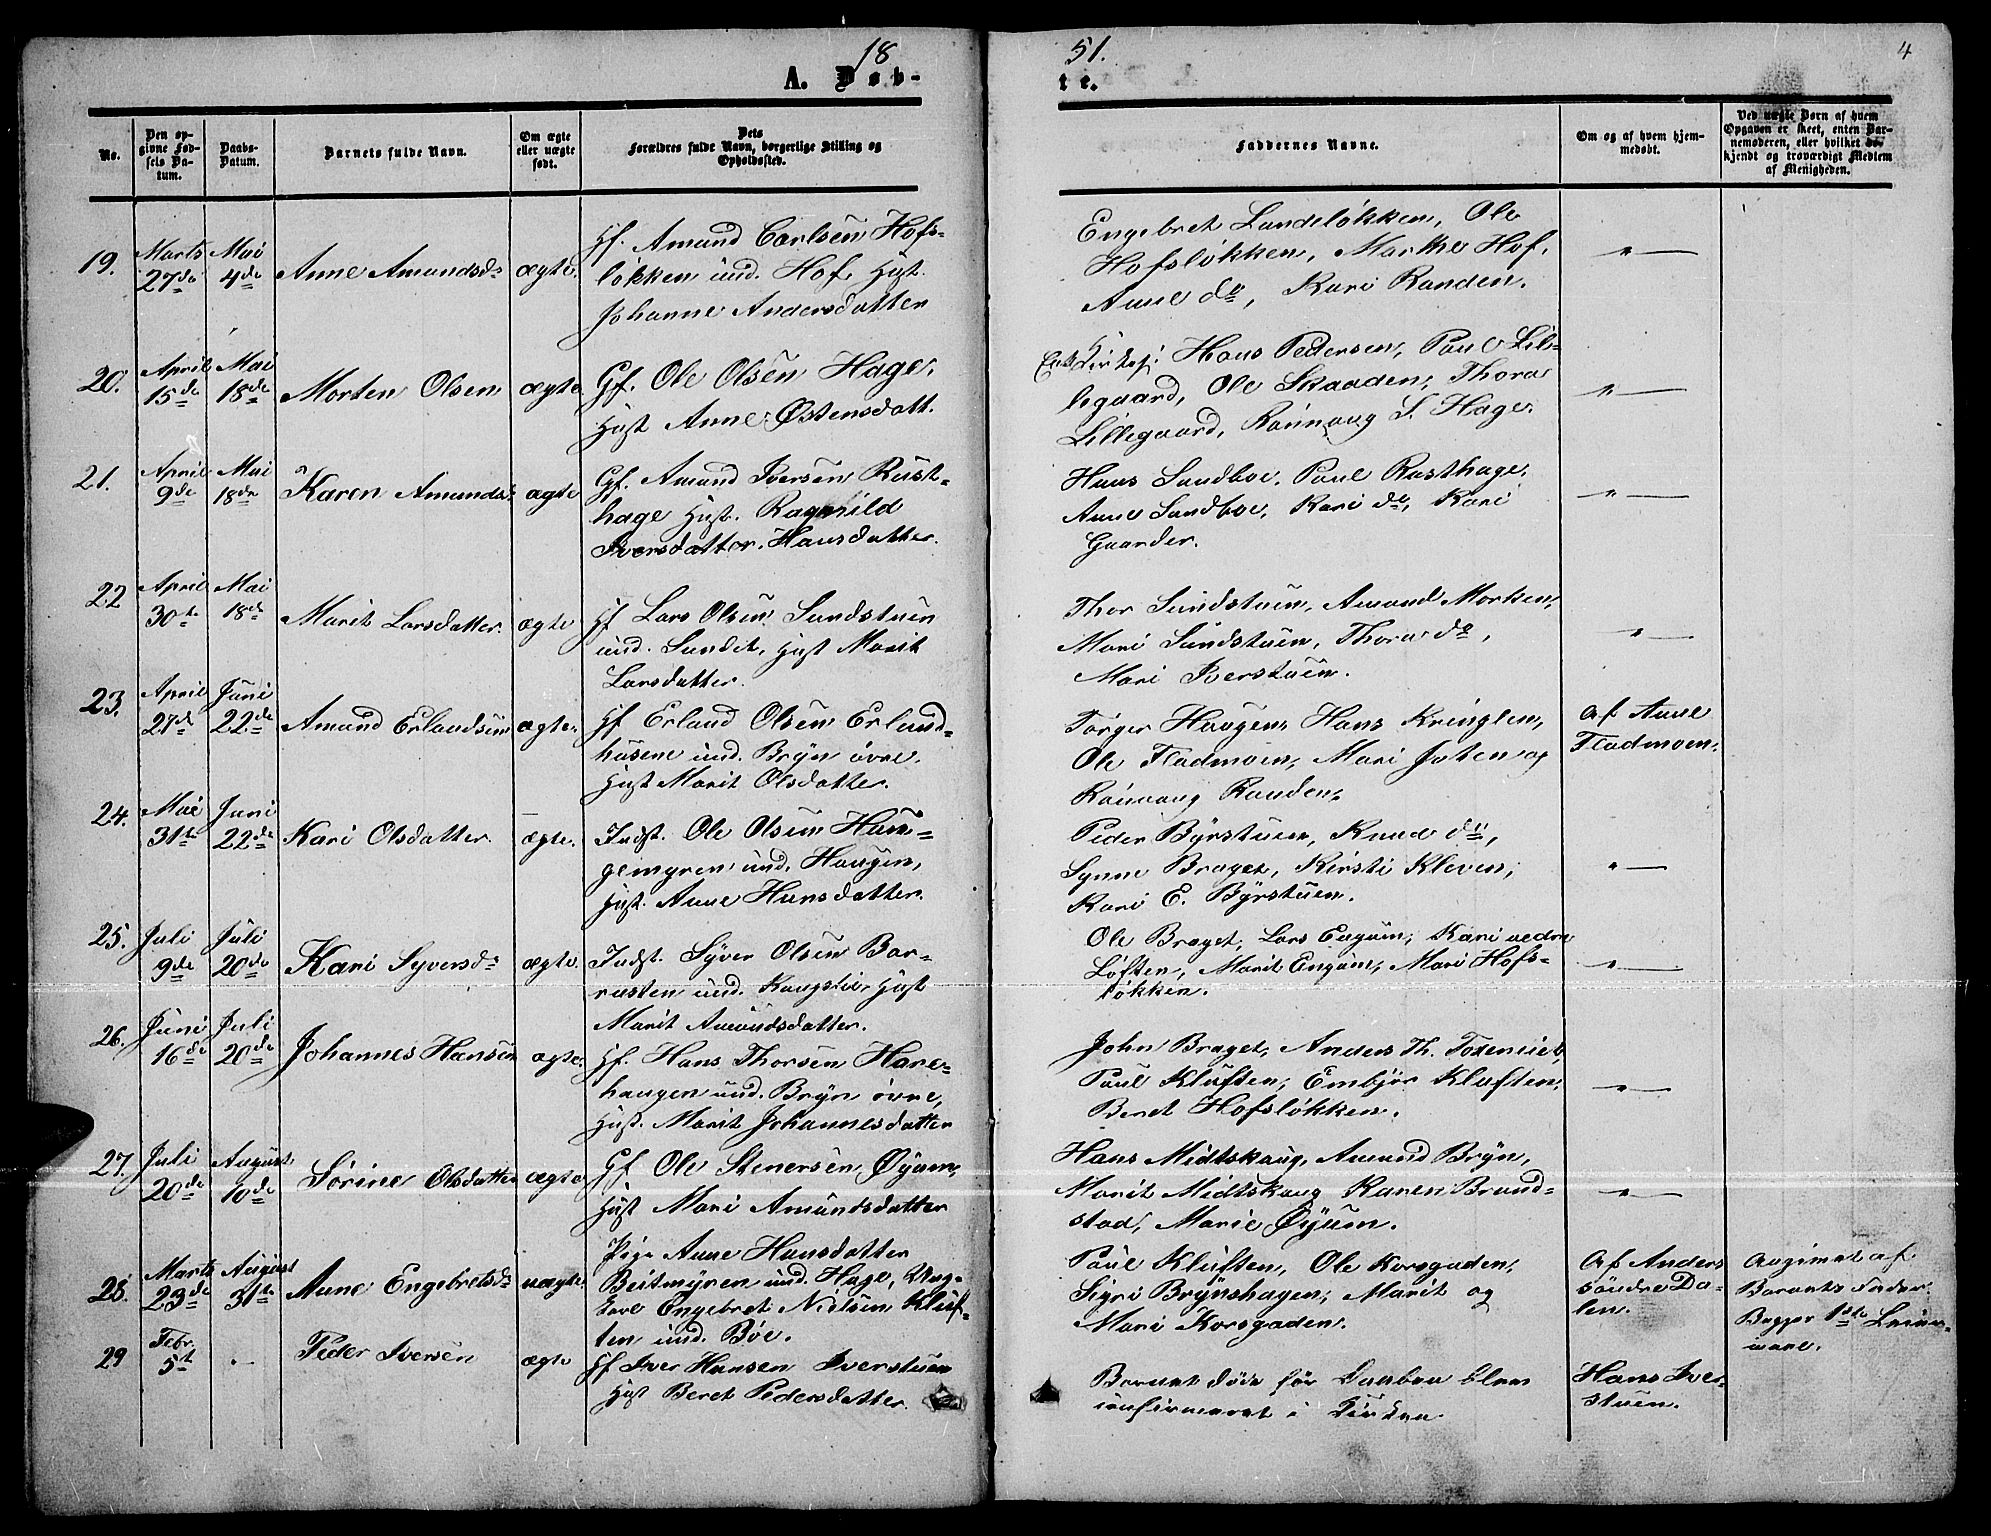 18
51.
4
A. Døb-
te.
No.
Den op-
givne Fød-
sels Da-
tum.
Daabs-
Datum.
Barnets fulde Navn.
Om ægte
eller uægte
født.
Dets
Forældres fulde Navn, borgerlige Stilling og
Opholdssted.
Faddernes Navne.
Om og af hvem hjem-
medøbt.
Ved uægte Børn af hvem
Opgaven er skeet, enten Bar-
nemoderen, eller hvilket be-
kjendt og troværdigt Medlem
af Menigheden.
19.
Marts
27de
Mai
4de
Anne Amundsdr
ægte.
Hf. Amund Carlsen Hofs-
løkken und. Hof, Hust.
Johanne Andersdatter
Engebret Lundeløkken, Ole
Hofsløkken, Marthe Hof,
Anne do, Kari Randen.
"
20.
April
15de
Mai
18de
Morten Olsen
ægte
Gf. Ole Olsen Hage,
Hust Anne Østensdatt.
Hans Pedersen, Paul Lil-
legaard, Ole Skaaden, Thora
Lillegaard, Rønnaug S. Hage.
"
21.
April
9de
Mai
18de
Karen Amundsd
ægte
Gf. Amund Iversen Rust-
hage Hust. Ragnhild
Iversdatter. Hansdatter.
Hans Sundboe, Paul Rusthage,
Anne Sundboe, Kari do, Kari
Gaarder.
"
22
April
30te
Mai
18de
Marit Larsdatter.
ægte
Hf Lars Olsen Sundstuen
und. Sundet, Hust Marit
Larsdatter.
Thor Sundstuen, Amund Morken,
Mari Sundstuen, Thora do,
Mari Iverstuen.
"
23.
April
27de
Juni
22de
Amund Erlandsen
ægte.
Hf Erland Olsen Erland-
husene und. Bryn øvre.
Hust Marit Olsdatter.
Torger Haugen, Hans Kringlen,
Ole Fladmoen, Mari Joten og
Rønnaug Randen.
Af Anne
Fladmoen.
24.
Mai
31te
Juni
22de
Kari Olsdatter.
ægte.
Indst. Ole Olsen Hau-
gemyren und. Haugen,
Hust. Anne Hansdatter.
Peder Byrstuen, Knud do,
Synne Braget, Kirsti Kleven,
Kari E. Byrstuen.
"
25.
Juli
9de
Juli
20de
Kari Syversdr
ægte.
Indst. Syver Olsen Bar-
rusten und. Kaugstie, Hust
Marit Amundsdatter.
Ole Braget, Lars Engum, Kari nedre
Løften, Marit Engum, Mari Hofs-
løkken.
"
26.
Juni
16de
Juli
20de
Johannes Hansen
ægte.
Hf. Hans Thorsen Hare-
haugen und. Bryn øvre,
Hust. Marit Johannesdatter
John Braget, Anders Th.
Paul Kluften, Embjør Kluften,
Beret Hofsløkken.
"
27.
Juli
20de
August
10de
Sørine Olsdatter
ægte
Gf Ole Stenersen Øyum,
Hust Mari Amundsdatter
Hans Midtskaug, Amund Bryn,
Marit Midtskaug Karen Brand-
stad, Marie Øyum.
"
28.
Marts
23de
August
31te
Anne Engebretsdr
uægte.
Pige Anne Hansdatter
Beitmyren und. Hage, Ung-
karl Engebret Nielsen Kluf-
ten und. Bøe.
Paul Kluften, Ole Korsgaden,
Sigri Brynshagen, Marit og
Mari Korsgaden.
Af Anders
søndre Da-
len.
Angivet af
Barnets Fader.
Begges 1ste Leier-
maal.
29
Febr.
5te
"
Peder Iversen
ægte
Hf Iver Hansen Iverstuen
Hust Beret Pedersdatter.
Barnet døde før Daaben blev
confirmeret i Kirken
Hans Iver-
stuen.